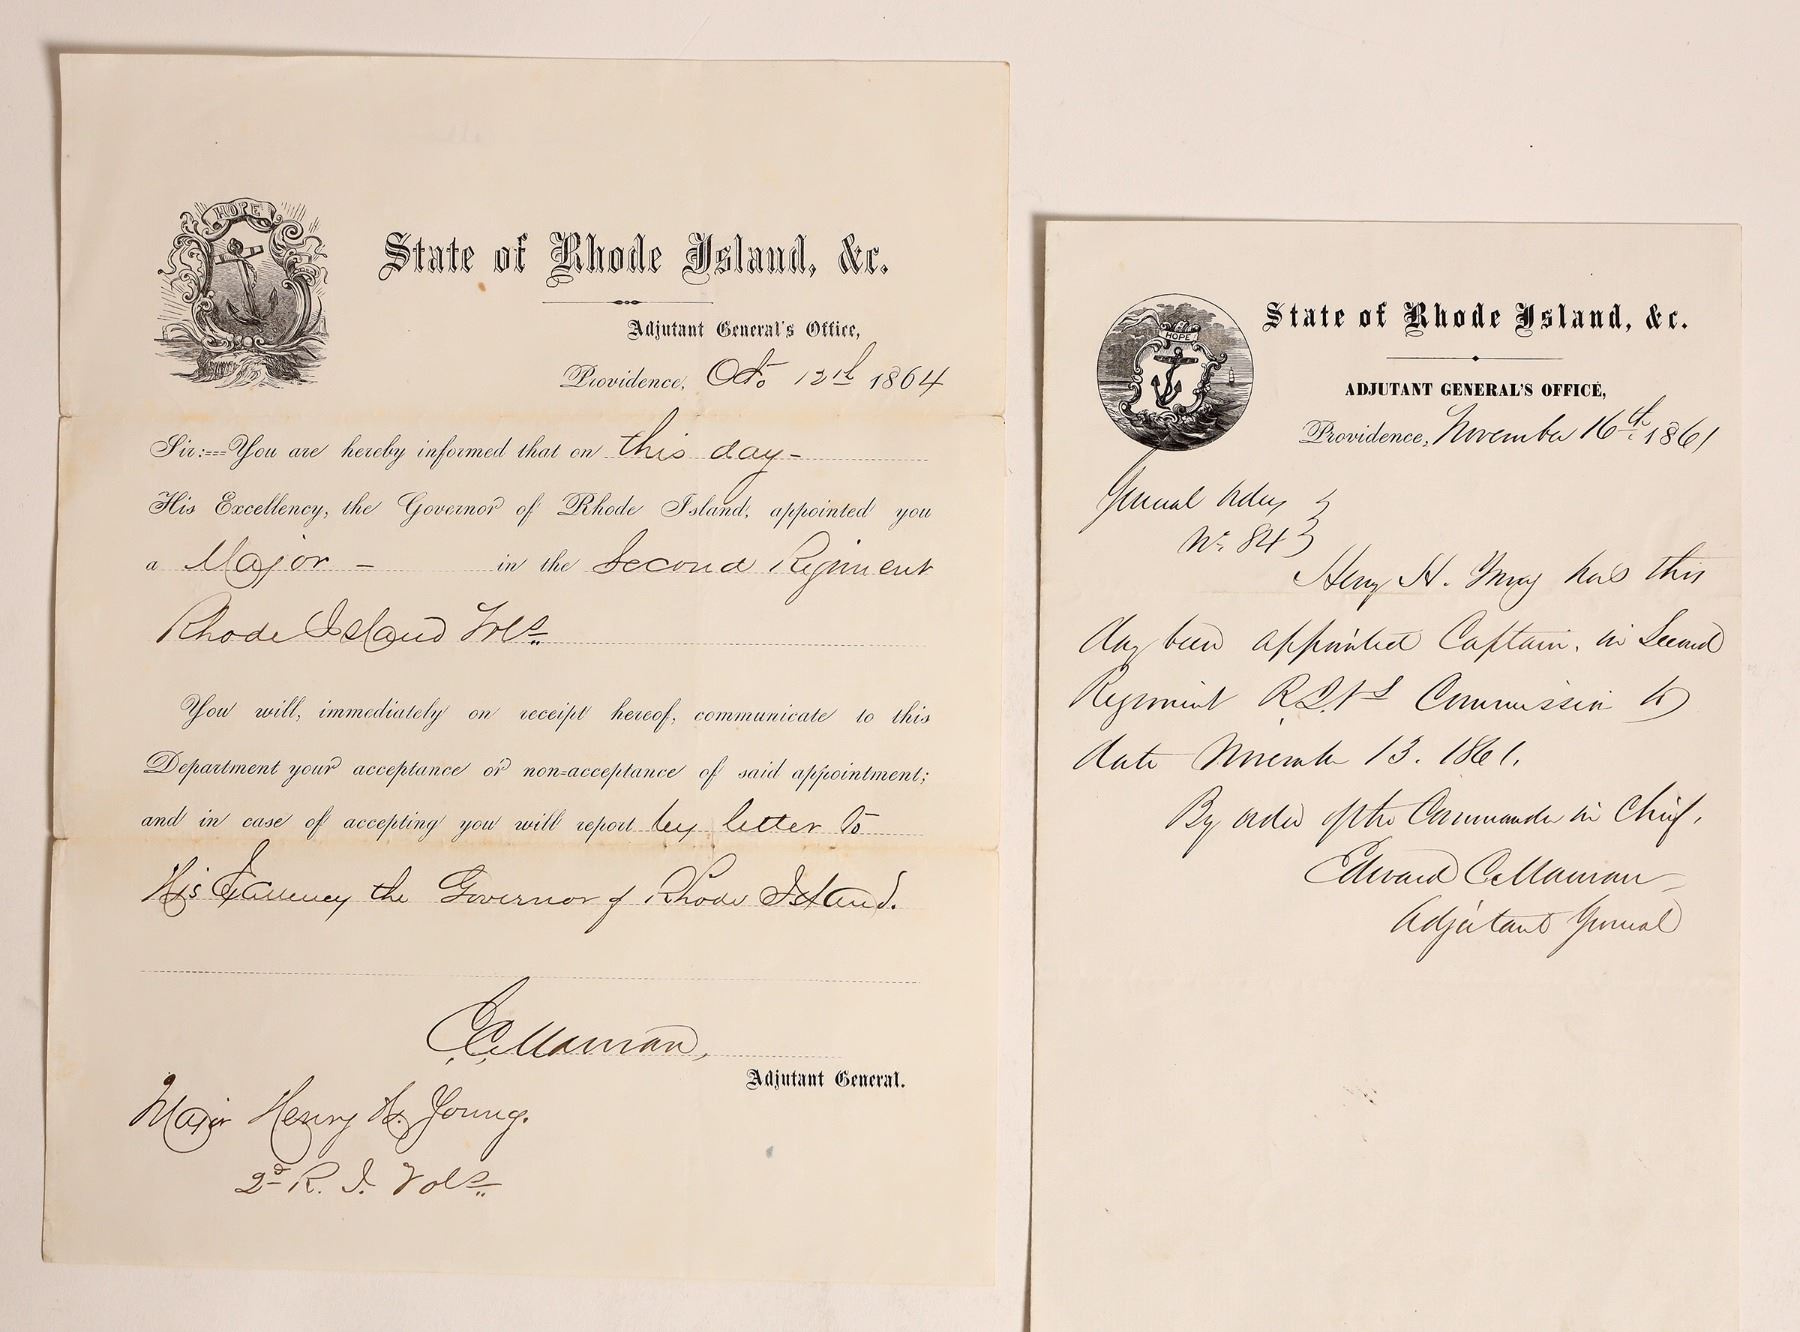 HOPE
State of Rhode Island, &c.
Adjutant General's Office,
Providence, Oct. 12th 1864
Sir:---You are hereby informed that on this day -
His Excellency, the Governor of Rhode Island, appointed you
a Major - in the Second Regiment
Rhode Island Vols.
You will, immediately on receipt hereof, communicate to this
Department your acceptance or non-acceptance of said appointment;
and in case of accepting you will report by letter to
His Excellency the Governor of Rhode Island.
E. C. Mauran,
Adjutant General.
Major Henry H. Young.
2d R. I. Vols.
HOPE
State of Rhode Island, &c.
ADJUTANT GENERAL'S OFFICE,
Providence, November 16th 1861
General Orders
No. 84
Henry H. Young has this
day been appointed Captain, in Second
Regiment R.I.Vs Commission to
date November 13. 1861.
By order of the Commander in Chief,
Edward C. Mauran
Adjutant General